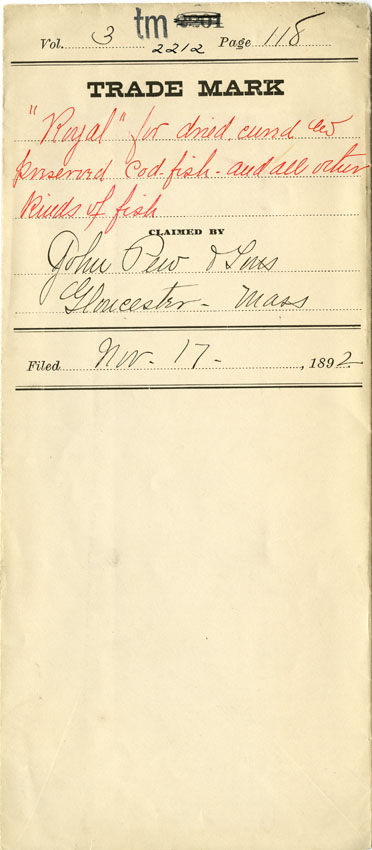 Vol. 3 tm 2201 Page 118
2212
TRADE MARK
"Royal" for dried, cured and
preserved Cod-fish - and all other
kinds of fish
CLAIMED BY
John Pew & Sons
Gloucester - Mass
Filed Nov. 17 - , 1892.